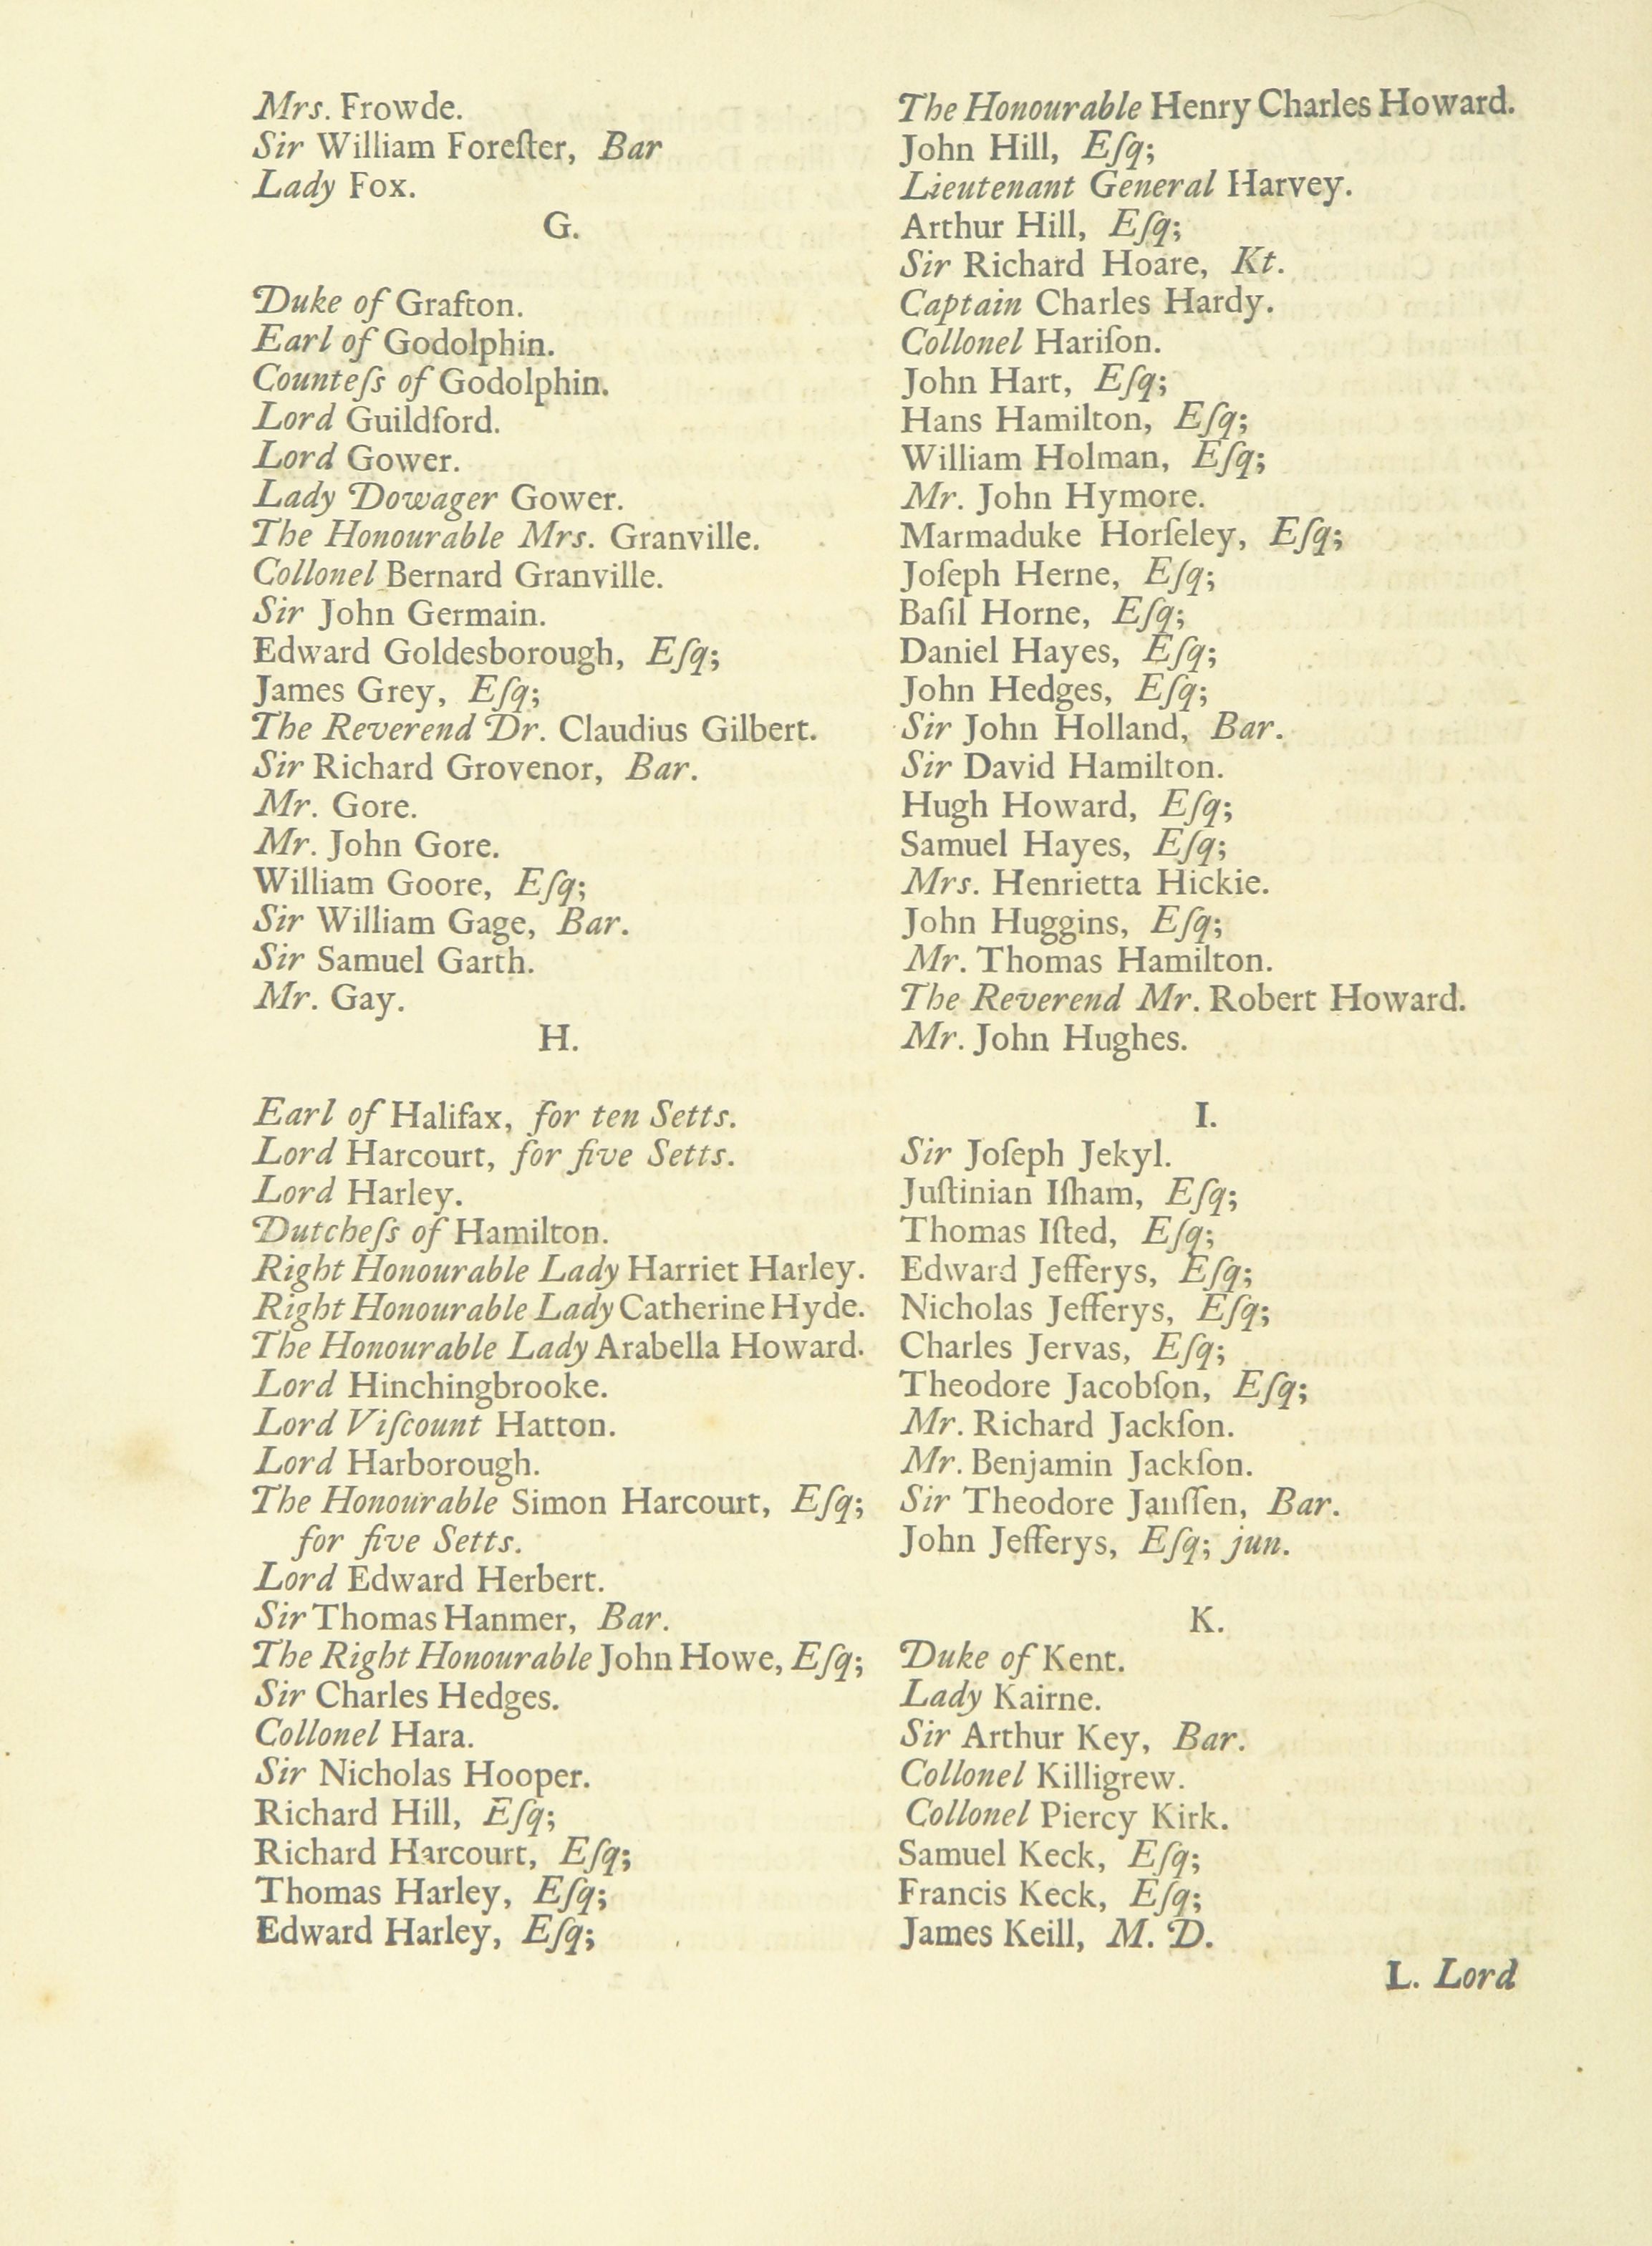 Mrs. Frowde.
Sir William Foreſter, Bar
Lady Fox.
G.
Duke of Grafton.
Earl of Godolphin.
Counteſs of Godolphin.
Lord Guildford.
Lord Gower.
Lady Dowager Gower.
The Honourable Mrs. Granville.
Collonel Bernard Granville.
Sir John Germain.
Edward Goldesborough, Eſq;
James Grey, Eſq;
The Reverend Dr. Claudius Gilbert.
Sir Richard Grovenor, Bar.
Mr. Gore.
Mr. John Gore.
William Goore, Eſq;
Sir William Gage, Bar.
Sir Samuel Garth.
Mr. Gay.
H.
Earl of Halifax, for ten Setts.
Lord Harcourt, for five Setts.
Lord Harley.
Dutcheſs of Hamilton.
Right Honourable Lady Harriet Harley.
Right Honourable Lady Catherine Hyde.
The Honourable Lady Arabella Howard.
Lord Hinchingbrooke.
Lord Viſcount Hatton.
Lord Harborough.
The Honourable Simon Harcourt, Eſq;
for five Setts.
Lord Edward Herbert.
Sir Thomas Hanmer, Bar.
The Right Honourable John Howe, Eſq;
Sir Charles Hedges.
Collonel Hara.
Sir Nicholas Hooper.
Richard Hill, Eſq;
Richard Harcourt, Eſq;
Thomas Harley, Eſq;
Edward Harley, Eſq;
The Honourable Henry Charles Howard.
John Hill, Eſq;
Lieutenant General Harvey.
Arthur Hill, Eſq;
Sir Richard Hoare, Kt.
Captain Charles Hardy.
Collonel Hariſon.
John Hart, Eſq;
Hans Hamilton, Eſq;
William Holman, Eſq;
Mr. John Hymore.
Marmaduke Horſeley, Eſq;
Joſeph Herne, Eſq;
Baſil Horne, Eſq;
Daniel Hayes, Eſq;
John Hedges, Eſq;
Sir John Holland, Bar.
Sir David Hamilton.
Hugh Howard, Eſq;
Samuel Hayes, Eſq;
Mrs. Henrietta Hickie.
John Huggins, Eſq;
Mr. Thomas Hamilton.
The Reverend Mr. Robert Howard.
Mr. John Hughes.
I.
Sir Joſeph Jekyl.
Juſtinian Iſham, Eſq;
Thomas Iſted, Eſq;
Edward Jefferys, Eſq;
Nicholas Jefferys, Eſq;
Charles Jervas, Eſq;
Theodore Jacobſon, Eſq;
Mr. Richard Jackſon.
Mr. Benjamin Jackſon.
Sir Theodore Janſſen, Bar.
John Jefferys, Eſq; jun.
K.
Duke of Kent.
Lady Kairne.
Sir Arthur Key, Bar.
Collonel Killigrew.
Collonel Piercy Kirk.
Samuel Keck, Eſq;
Francis Keck, Eſq;
James Keill, M. D.
L. Lord